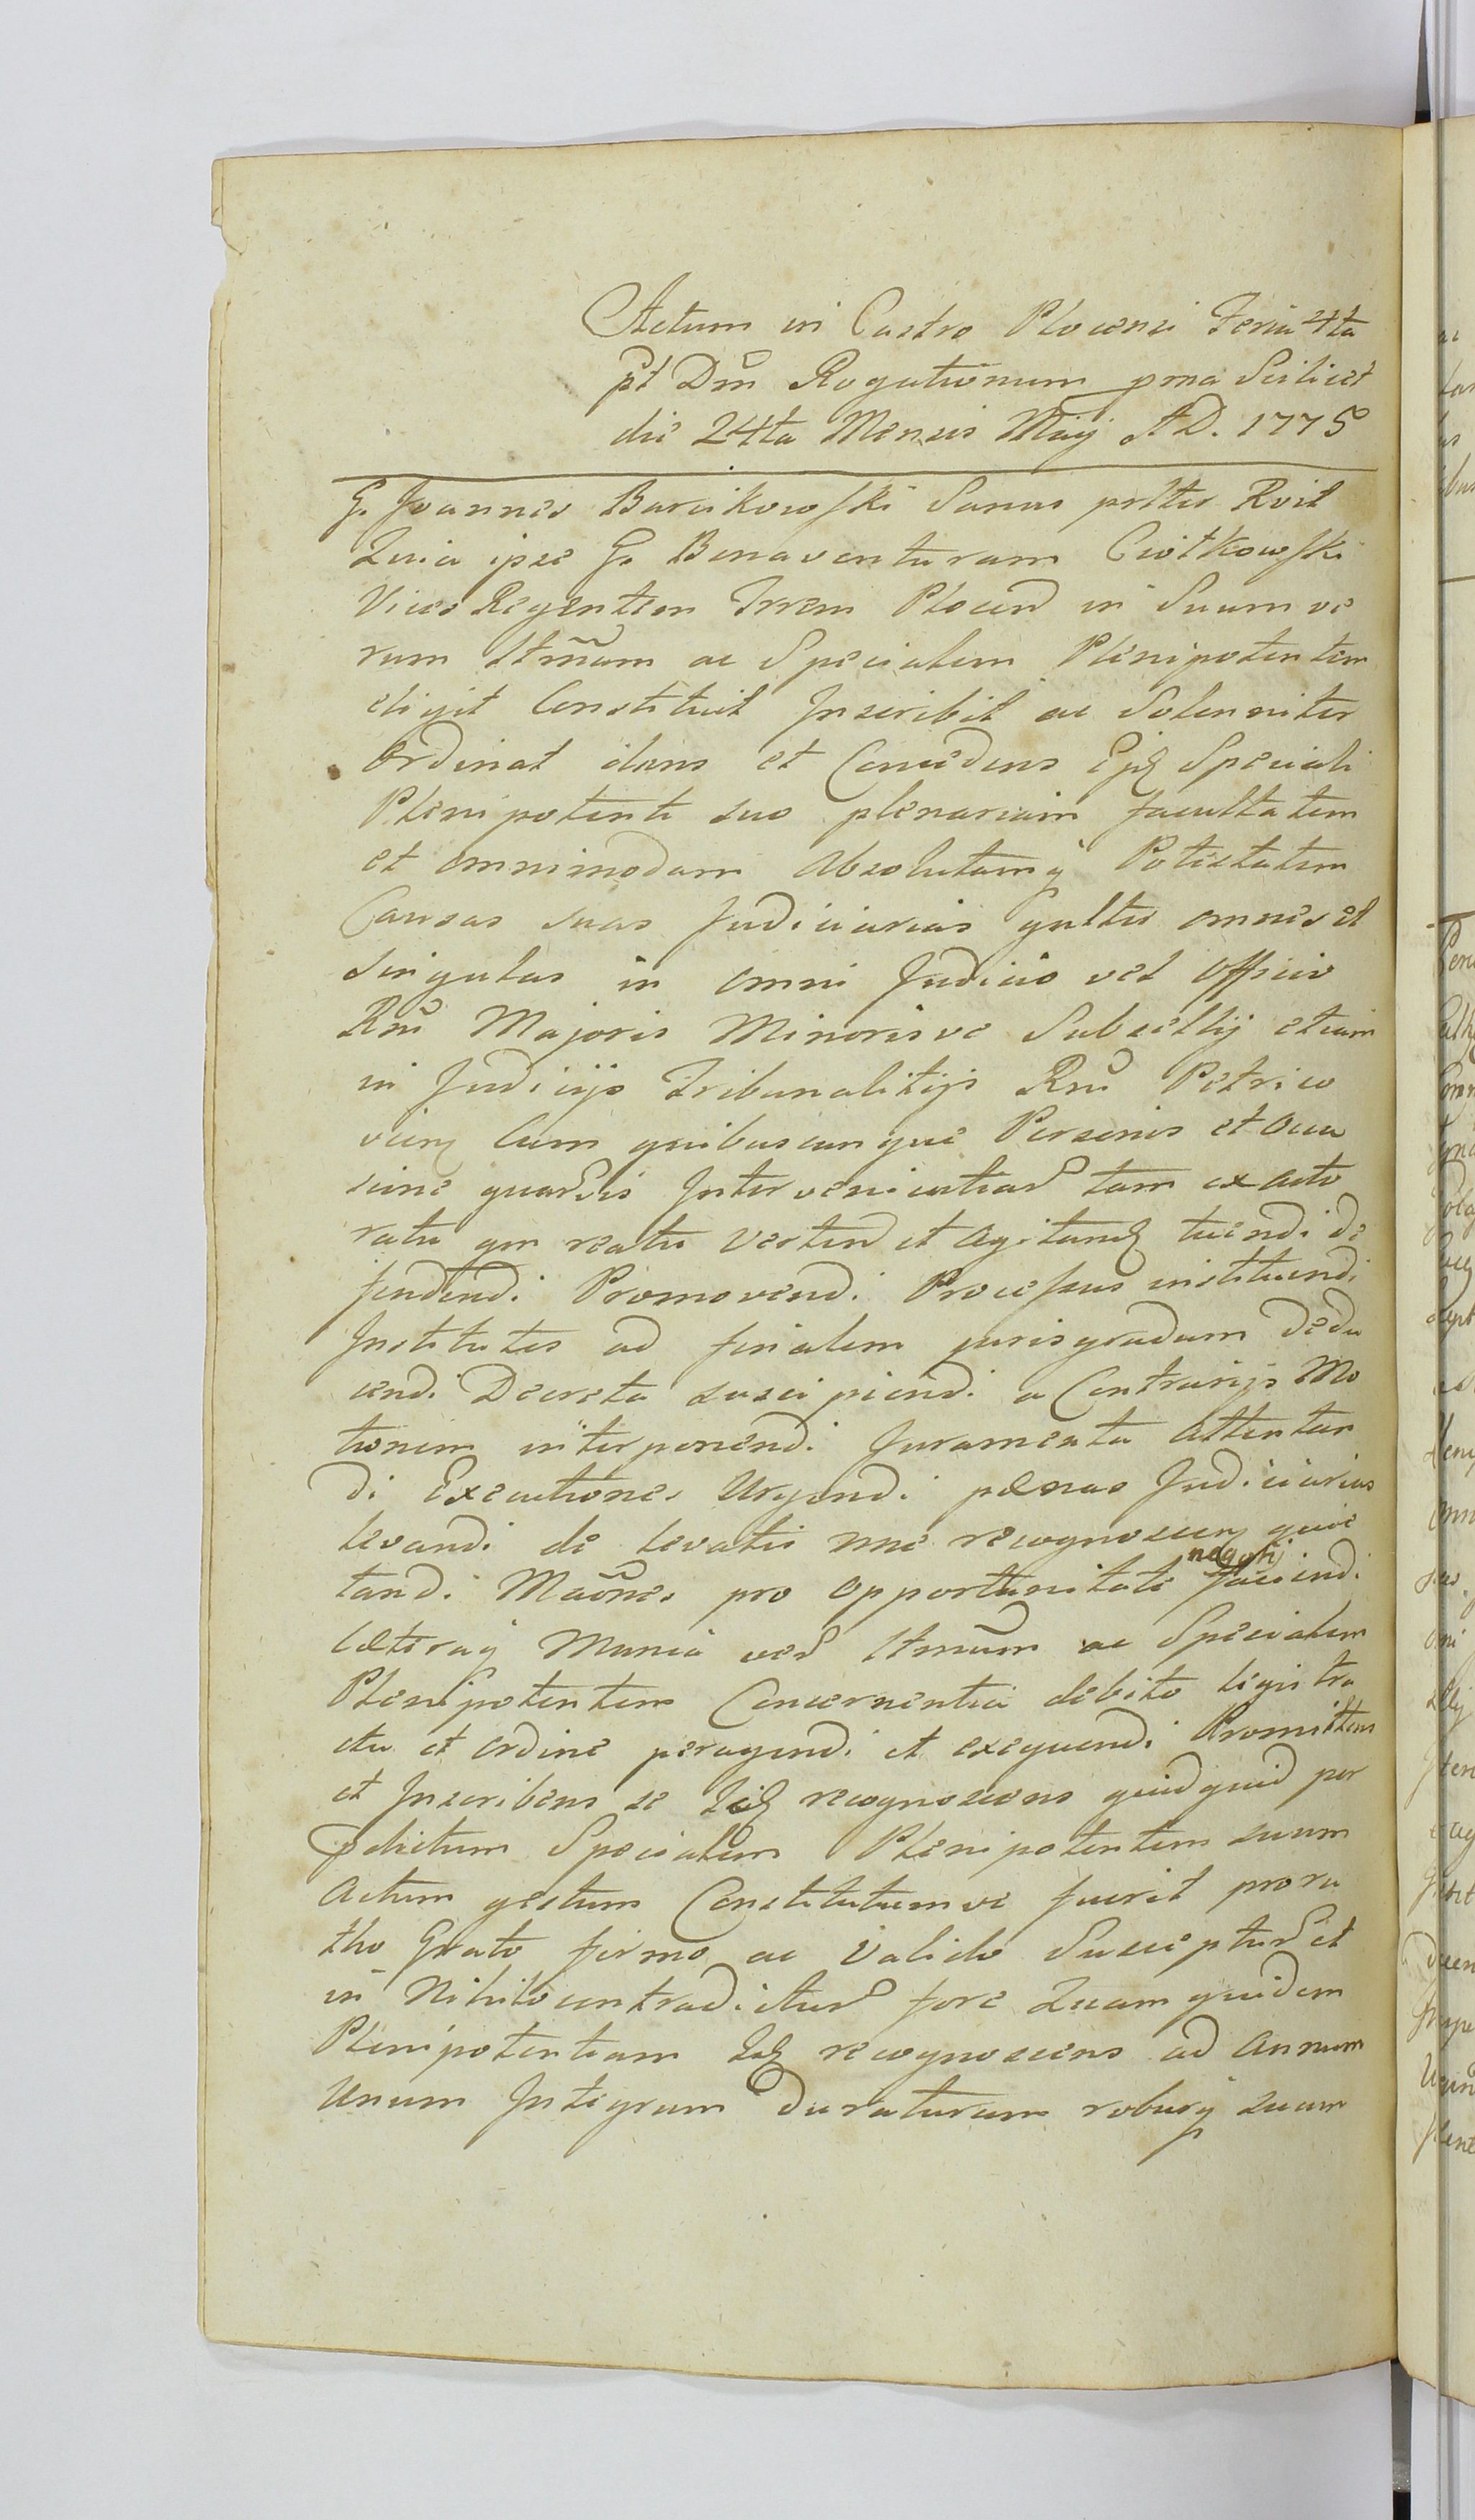 Actum in Castro Plocensi Feria 4ta
pt Dm̃ Rogationum pma Scilicet
die 24ta Mensis Maÿ A D. 1775
G. Joannes Barcikowski Sanus pstter Rvit
Quia ipse G. Bonaventuram Ciołkowski
Vices Regentem Trrem Plocen in Suum ve
rum Ittmũm ac Specialem Plenipotentem
eligit Constituit Inscribit ac Solenniter
Ordinat dans et Concedens Ejq Speciali
Plenipotenti suo plenariam facultatem
et omnimodam Absolutamq Potestatem
Causas suas Judiciarias gnlter omnes et
Singulas in omni Judicio vel Officio
Rni Majoris Minorisve Subsellij etiam
in Judicijs Tribunalitijs Rni Petrico
vien cum quibuscunque Personis et Occa
sione quarvis Intervenientiar tam ex acto
ratu qm reatu Verten et Agitanq tuendi de
fendendi Promovendi Processus instituendi
Institutos ad finalem jurisgradum Dedu
cendi Decreta suscipiendi a Contrarijs Mo
tionem interponendi Juramenta Attentan
di Executiones Urgendi pœnas Judiciarias
levandi de levatis une recognoscen quie
tandi Maõnes pro Opportunitate negotij faciendi
Cæteraq Munia ver Ittmũm ac Specialem
Plenipotentem Concernentia debito legis tra
ctu et Ordine peragendi et exequendi Promittens
et Inscribens se Idq recognoscens quidquid per
pdictum Specialem Plenipotentem suum
Actum gestum Constitutumve fuerit pro ra
tho Grato firmo ac Valido Suscepturs et
in Nihilo contradicturs fore Quam quidem
Plenipotentiam Idq recognoscens ad Annum
Unum Integrum Duraturam roburq suum